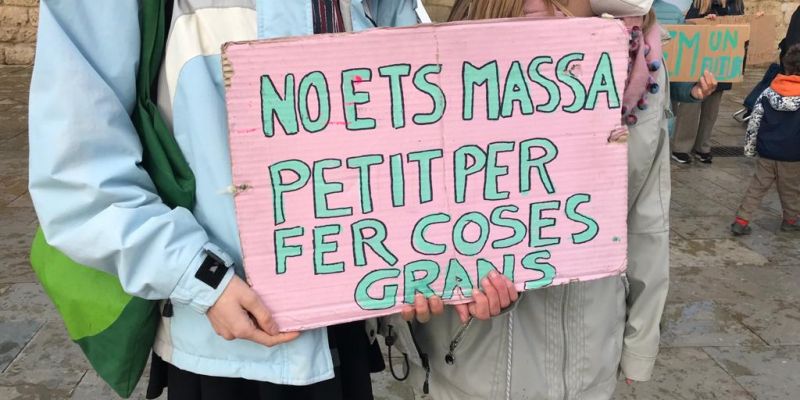 NO ETS MASSA
PETIT PER
FER COSES
GRANS
M UN
FUTUR